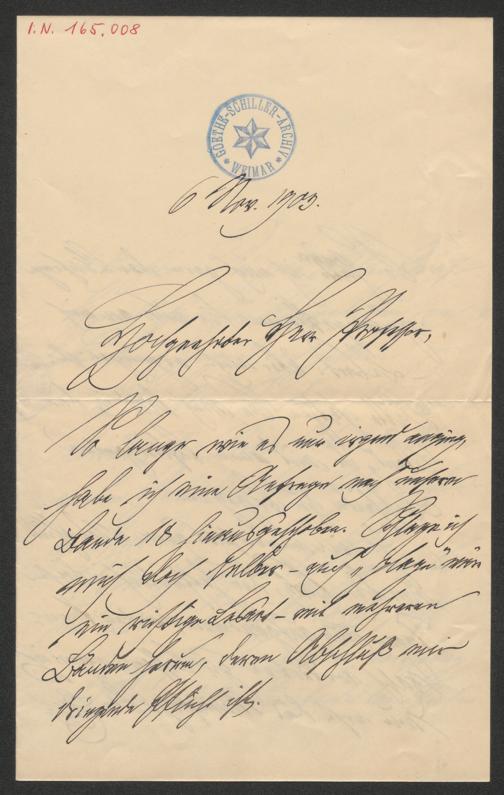 I.N. 165.008
GOETHE-SCHILLER-ARCHIV
WEIMAR
6 Nov. 1903.
Hochgeehrter Herr Professor,
So lange wie es nur irgend anging,
habe ich eine Anfrage nach Ihrem
Bande 18 hinausgeschoben. Schlage ich
mich doch selber – auch „plage“ wäre
eine richtige Lesart – mit mehreren
Bänden herum, deren Abschluß mir
dringende Pflicht ist.